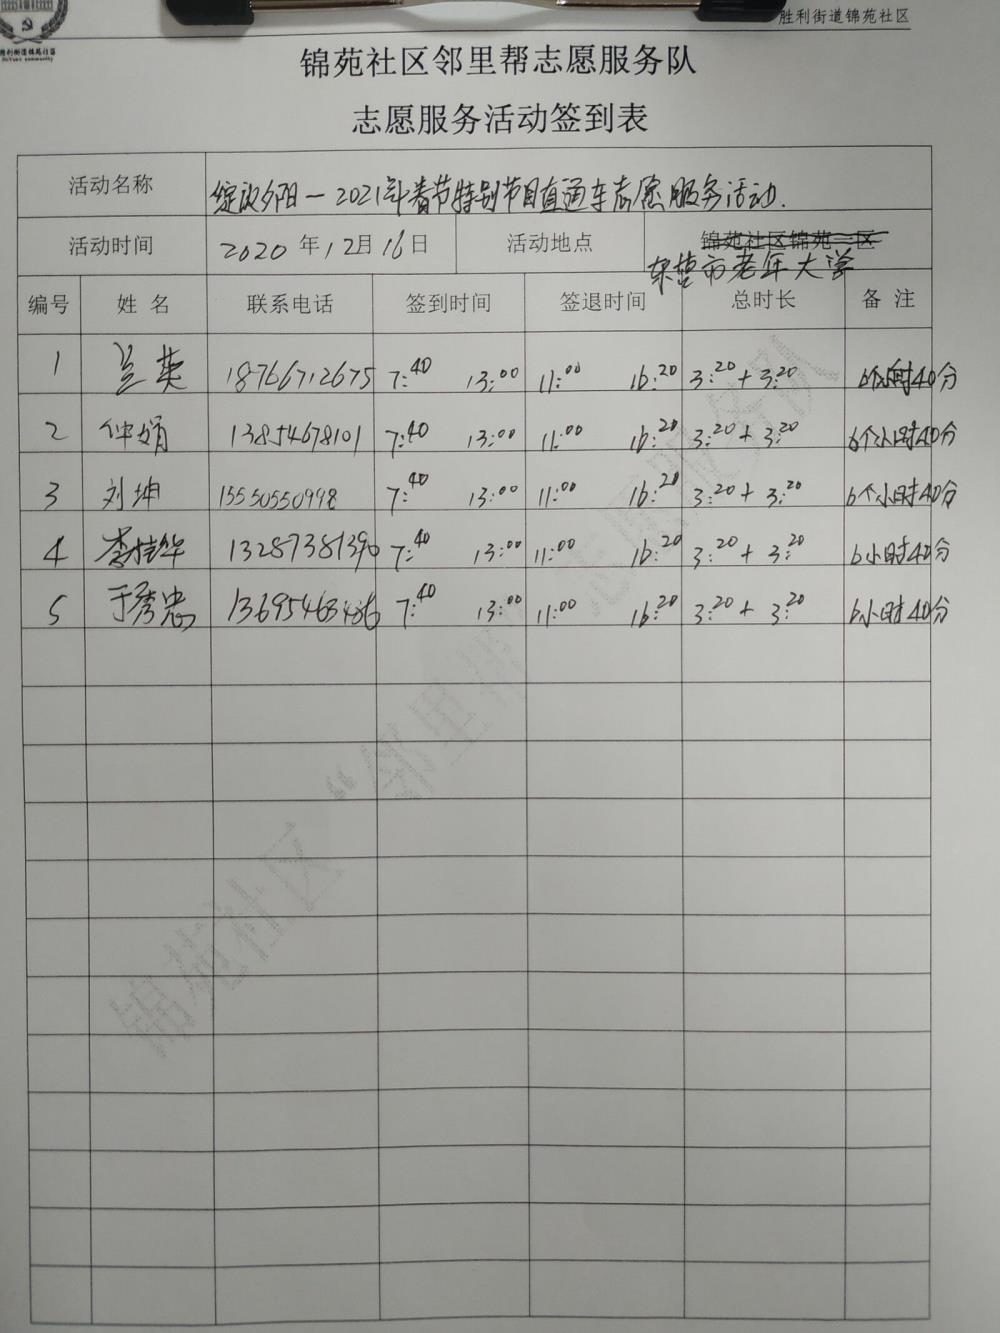 胜利街道锦苑社区
胜利街道锦苑社区
锦苑社区邻里帮志愿服务队
志愿服务活动签到表
活动名称 绽放夕阳—2021年春节特别节目直通车志愿服务活动.
活动时间 2020年12月16日 活动地点 锦苑社区锦苑三区
东营市老年大学
编号 姓名 联系电话 签到时间 签退时间 总时长 备注
1 兰英 18766712675 7:40 13:00 11:00 16:20 3:20+3:20 6个小时40分
2 仲娟 13854678101 7:40 13:00 11:00 16:20 3:20+3:20 6个小时40分
3 刘坤 15550550998 7:40 13:00 11:00 16:20 3:20+3:20 6个小时40分
4 李桂华 13287381390 7:40 13:00 11:00 16:20 3:20+3:20 6小时40分
5 于秀忠 13695463486 7:40 13:00 11:00 16:20 3:20+3:20 6小时40分
锦苑社区“邻里帮”志愿服务队